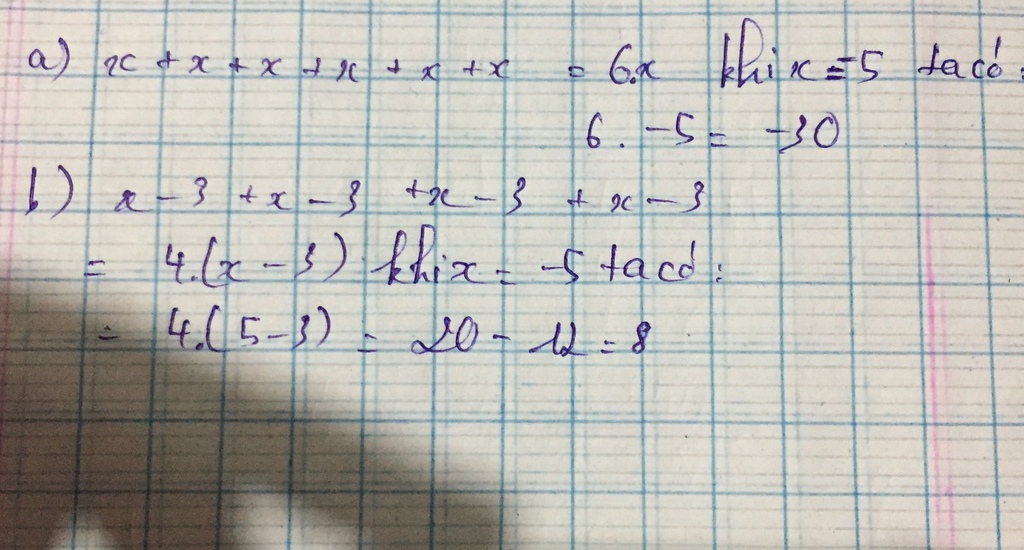 a) x + x + x + x + x + x = 6.x khi x = -5 ta có:
6. -5 = -30
b) x - 3 + x - 3 + x - 3 + x - 3
= 4.(x - 3) khi x = -5 ta có:
= 4.(5-3) = 20 - 12 = 8